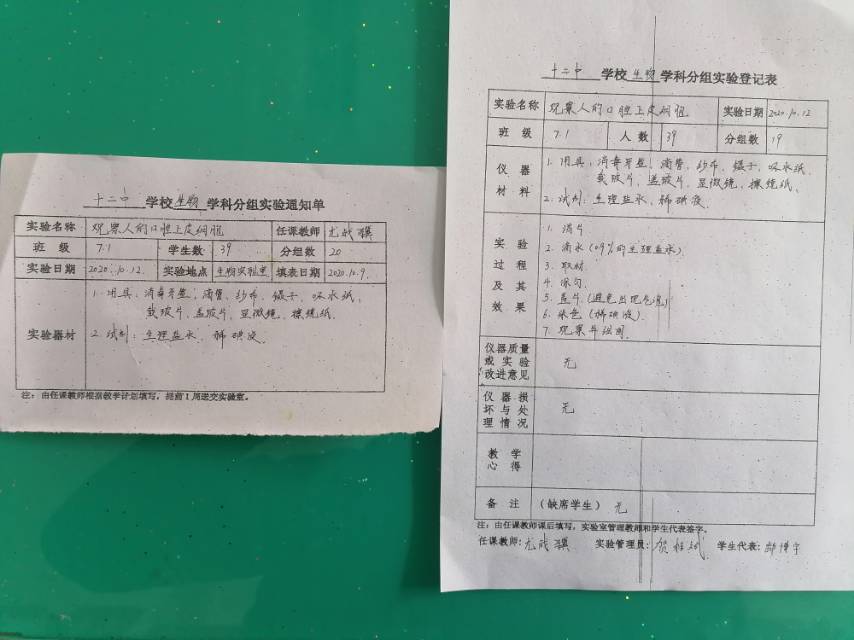 十二中 学校 生物 学科分组实验通知单
实验名称 观察人的口腔上皮细胞 任课教师 尤战骐
班 级 7.1 学生数 39 分组数 20
实验日期 2020.10.12. 实验地点 生物实验室 填表日期 2020.10.9.
实验器材
1. 用具：消毒牙签、滴管、纱布、镊子、吸水纸、
载玻片、盖玻片、显微镜、擦镜纸.
2. 试剂：生理盐水、稀碘液.
注：由任课教师根据教学计划填写，提前1周送交实验室。
十二中 学校 生物 学科分组实验登记表
实验名称 观察人的口腔上皮细胞 实验日期 2020.10.12
班 级 7.1 人 数 39 分组数 19
仪 器 材 料
1. 用具：消毒牙签、滴管、纱布、镊子、吸水纸、
载玻片、盖玻片、显微镜、擦镜纸、
2. 试剂：生理盐水、稀碘液.
实 验 过 程 及 其 效 果
1. 清片
2. 滴水（0.9%的生理盐水）
3. 取材
4. 涂匀
5. 盖片（避免出现气泡）
6. 染色（稀碘液）
7. 观察并绘图
仪器质量或实验改进意见 无
仪器损坏与处理情况 无
教 学 心 得
备 注 （缺席学生） 无
注：由任课教师课后填写，实验室管理教师和学生代表签字。
任课教师： 实验管理员： 学生代表：